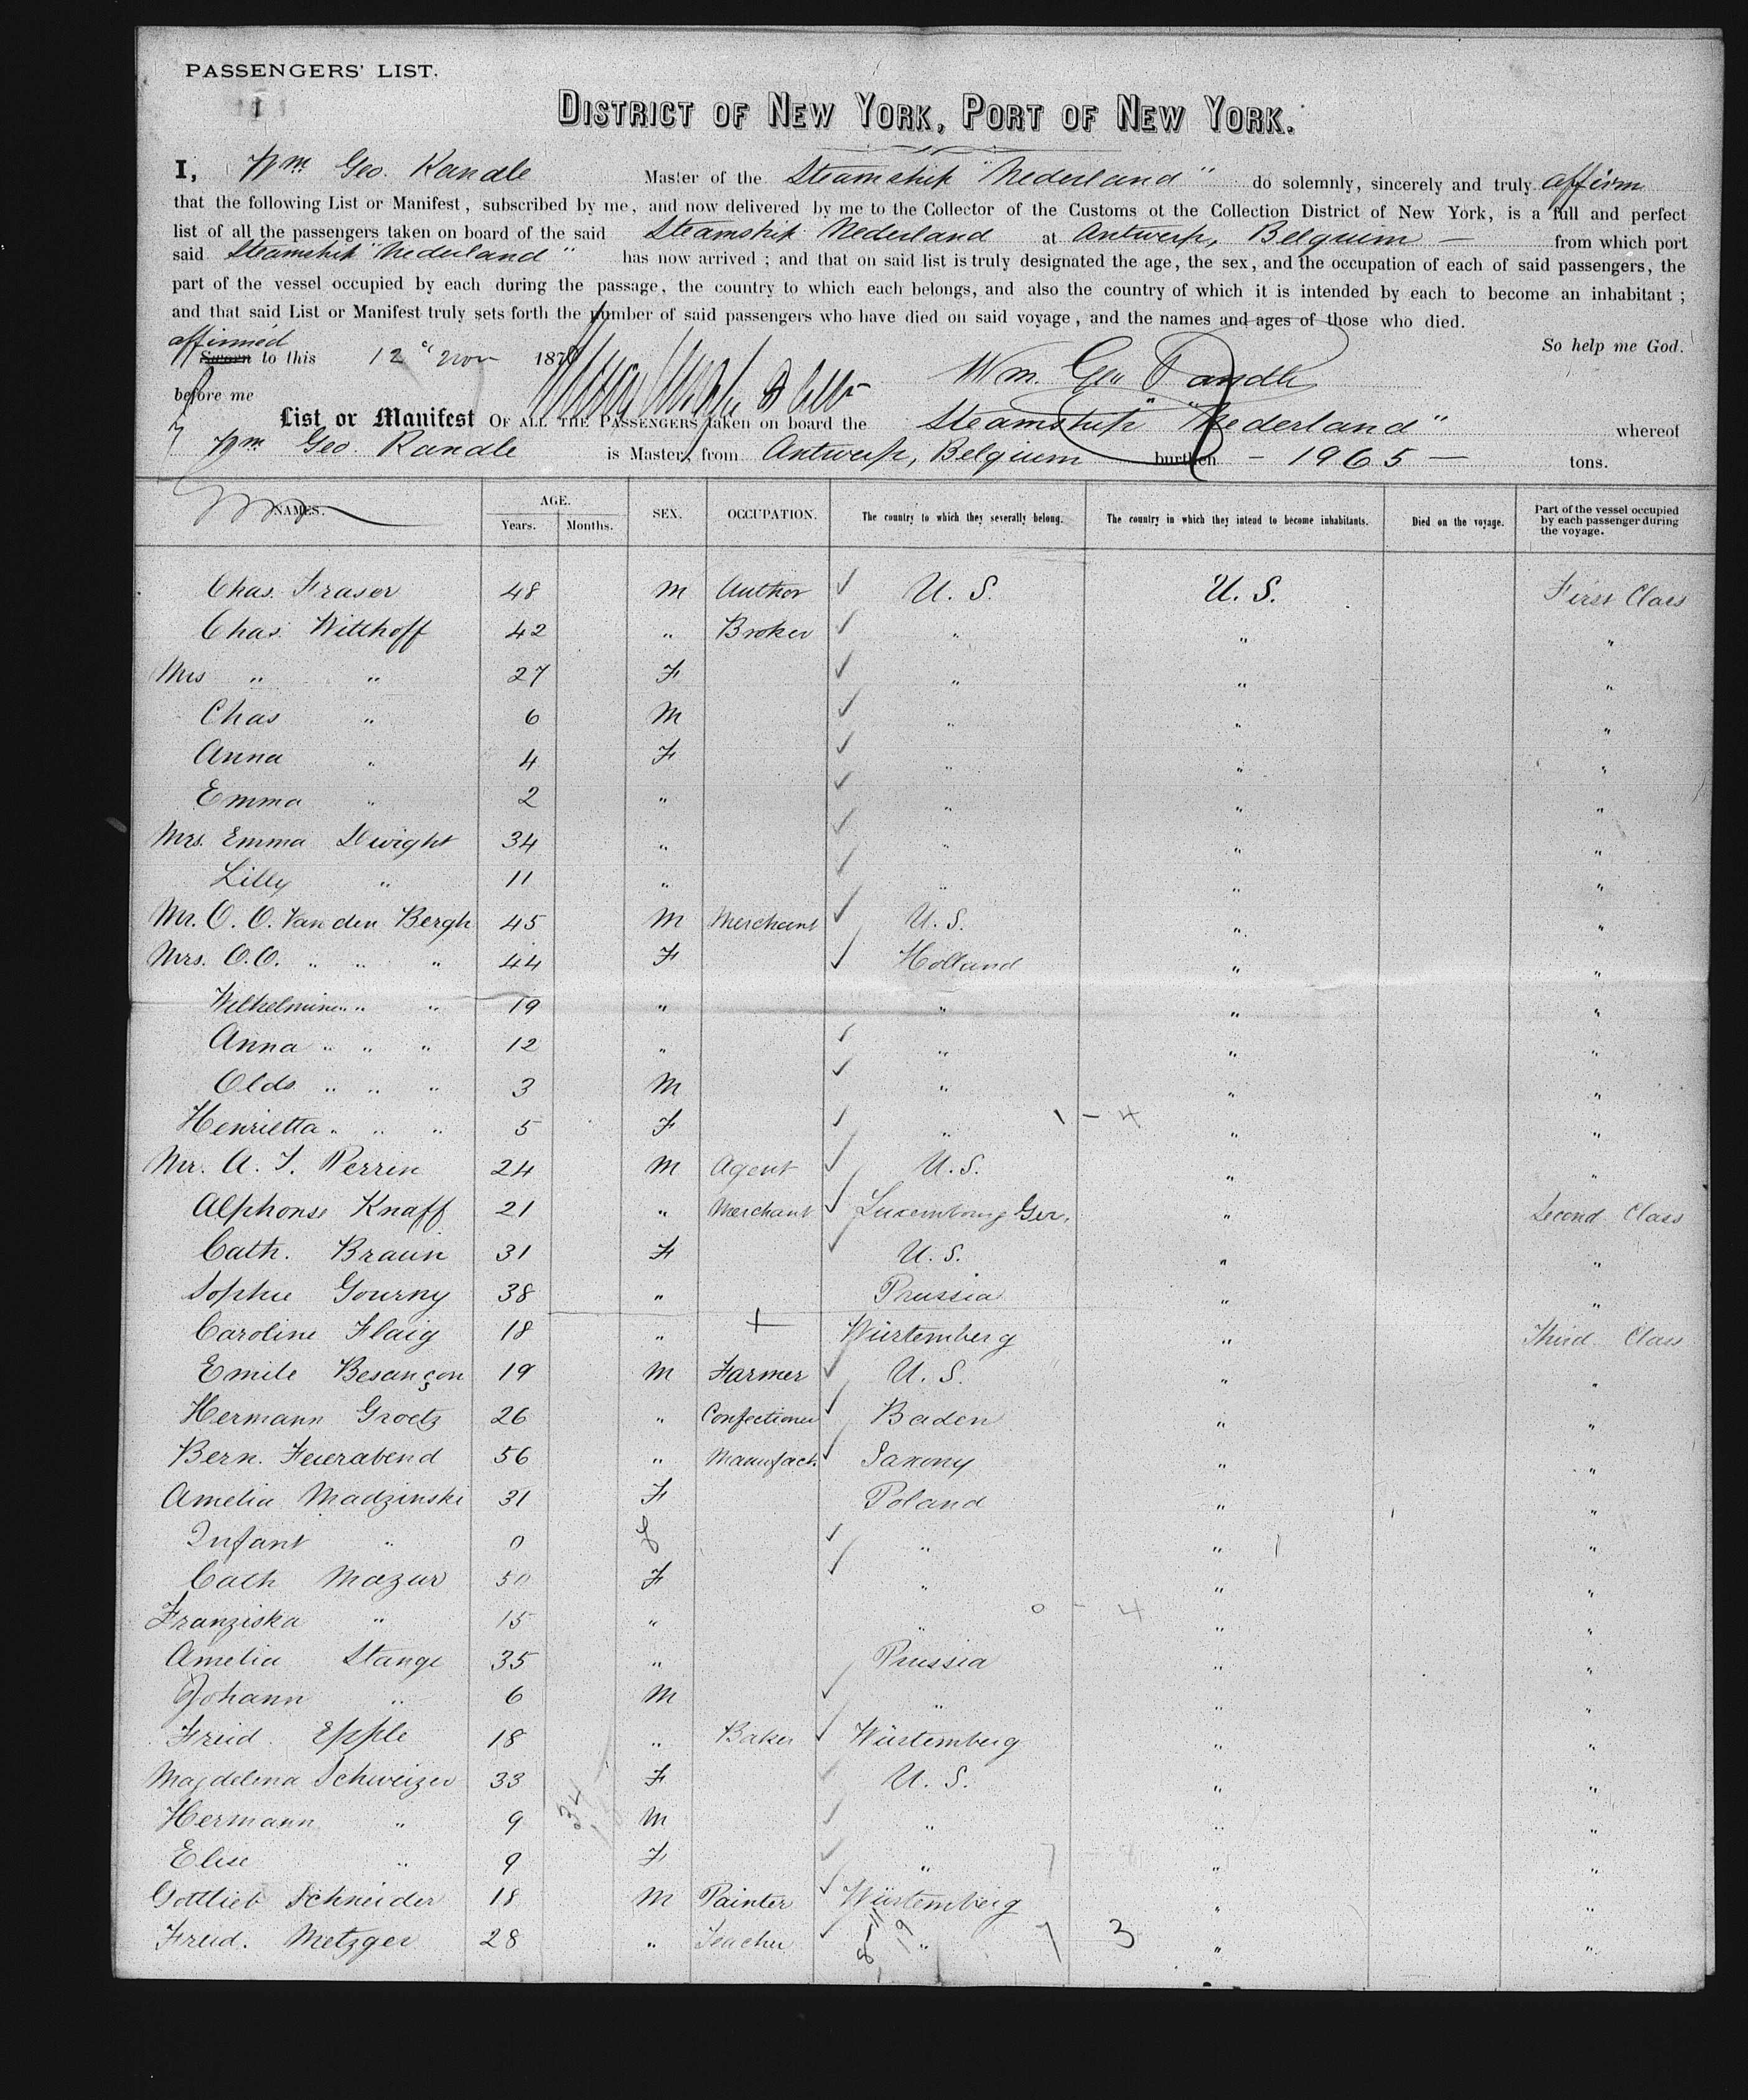 PASSENGERS' LIST.
1
DISTRICT OF NEW YORK, PORT OF NEW YORK.
I, Wm. Geo. Randle Master of the Steamship "Nederland" do solemnly, sincerely and truly affirm
that the following List or Manifest, subscribed by me, and now delivered by me to the Collector of the Customs ot the Collection District of New York, is a full and perfect
list of all the passengers taken on board of the said Steamship Nederland at Antwerp, Belguim — from which port
said Steamship "Nederland" has now arrived ; and that on said list is truly designated the age, the sex, and the occupation of each of said passengers, the
part of the vessel occupied by each during the passage, the country to which each belongs, and also the country of which it is intended by each to become an inhabitant ;
and that said List or Manifest truly sets forth the number of said passengers who have died on said voyage, and the names and ages of those who died.
affirmed So help me God.
Sworn to this 12 Nov 187
before me Wm. Geo Randle
List or Manifest OF ALL THE PASSENGERS taken on board the Steamship "Nederland" whereof
Wm. Geo. Randle is Master, from Antwerp, Belgium burthen - 1965 - tons.
NAMES. AGE. Years. Months. SEX. OCCUPATION. The country to which they severally belong. The country in which they intend to become inhabitants. Died on the voyage. Part of the vessel occupied by each passenger during the voyage.
Chas. Fraser 48 M Author ✓ U. S. U. S. First Class
Chas. Witthoff 42 " Broker ✓ " " "
Mrs " " 27 F ✓ " " "
Chas " 6 M ✓ " " "
Anna " 4 F ✓ " " "
Emma " 2 " ✓ " " "
Mrs. Emma Dwight 34 " ✓ " " "
Lilly " 11 " ✓ " " "
Mr. O. O. Van den Bergh 45 M Merchant ✓ U. S. " "
Mrs. O. O. " " " 44 F ✓ Holland " "
Wilhelmine " " " 19 " " " "
Anna " " " 12 " ✓ " " "
Olds " " " 3 M ✓ " " "
Henrietta " " " 5 F ✓ " 1 - 4 " "
Mr. A. T. Perrin 24 M Agent ✓ U. S. " "
Alphonse Knaff 21 " Merchant ✓ Luxembourg Ger. " Second Class
Cath. Braun 31 F ✓ U. S. " "
Sophie Gourny 38 " Prussia " "
Caroline Flaig 18 " + Würtemberg " Third Class
Emile Besançon 19 M Farmer ✓ U. S. " "
Hermann Groetz 26 " Confectioner ✓ Baden " "
Bern. Feierabend 56 " Manufact. ✓ Saxony " "
Amelia Madzinski 31 F Poland " "
Infant " 0 f ✓ " " "
Cath Mazur 50 F ✓ " " "
Franziska " 15 " " 0 - 4 " "
Amelia Stange 35 " Prussia " "
Johann " 6 M ✓ " " "
Freid. Epple 18 " Baker ✓ Würtemberg " "
Magdelena Schweizer 33 F ✓ U. S. " "
Hermann " 9 M ✓ " " "
Elise " 9 F ✓ " " "
Gottlieb Schneider 18 M Painter ✓ Würtemberg " "
Freid. Metzger 28 " Teacher ✓ " 7 3 " "